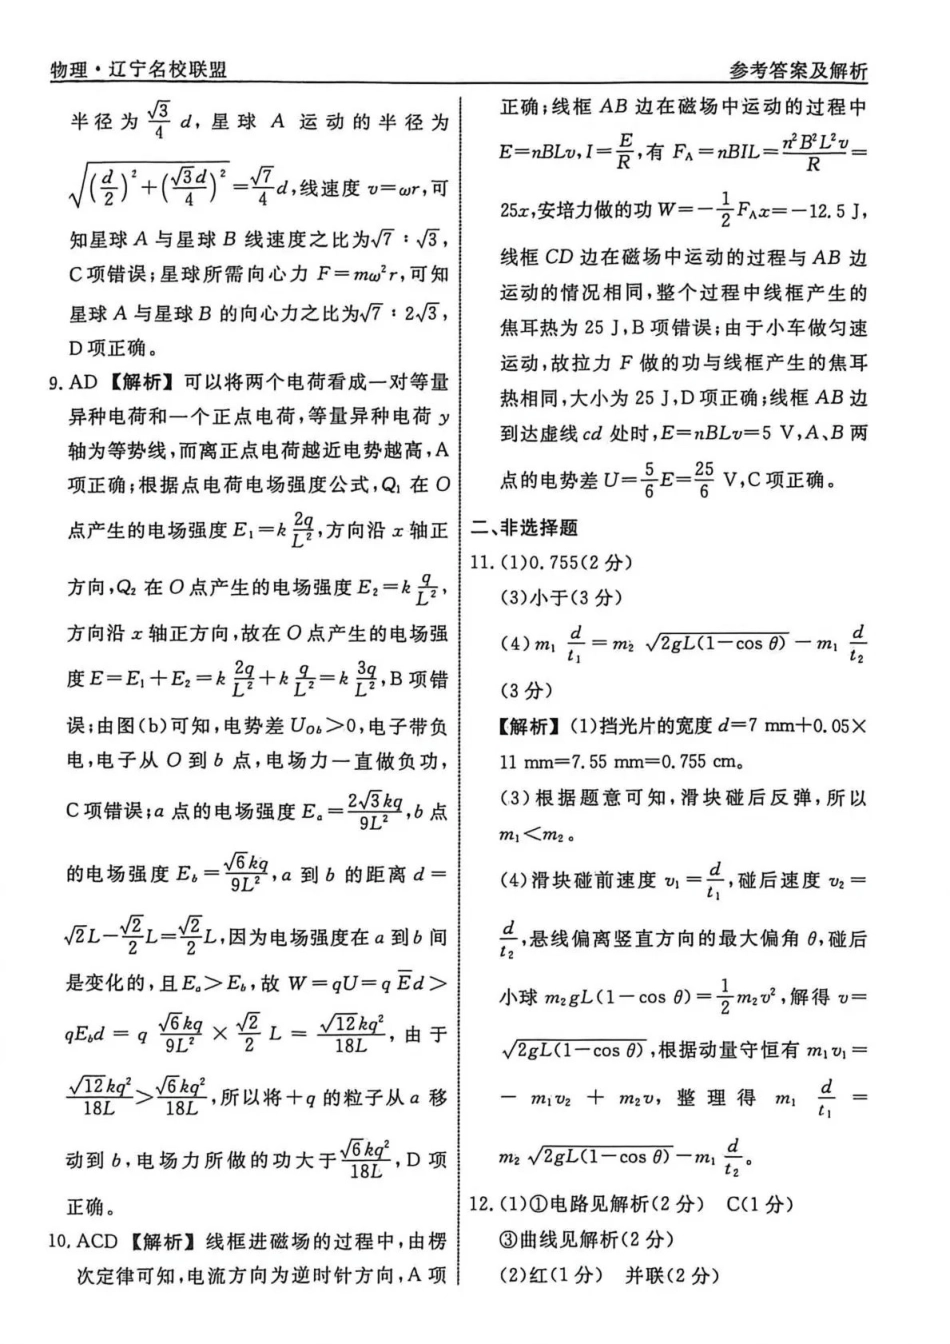 物理·辽宁名校联盟
参考答案及解析
半径为 √3/4 d,星球 A 运动的半径为
√((d/2)²+(√3d/4)²)=√7/4 d,线速度 v=ωr,可
知星球 A 与星球 B 线速度之比为√7∶√3,
C 项错误;星球所需向心力 F=mω²r,可知
星球 A 与星球 B 的向心力之比为√7∶2√3,
D 项正确。
9. AD 【解析】可以将两个电荷看成一对等量
异种电荷和一个正点电荷,等量异种电荷 y
轴为等势线,而离正点电荷越近电势越高,A
项正确;根据点电荷电场强度公式,Q₁ 在 O
点产生的电场强度 E₁=k 2q/L²,方向沿 x 轴正
方向,Q₂ 在 O 点产生的电场强度 E₂=k q/L²,
方向沿 x 轴正方向,故在 O 点产生的电场强
度 E=E₁+E₂=k 2q/L²+k q/L²=k 3q/L²,B 项错
误;由图(b)可知,电势差 U_Ob>0,电子带负
电,电子从 O 到 b 点,电场力一直做负功,
C 项错误;a 点的电场强度 Eₐ=2√3kq/9L²,b 点
的电场强度 E_b=√6kq/9L²,a 到 b 的距离 d=
√2L-√2/2 L=√2/2 L,因为电场强度在 a 到 b 间
是变化的,且 Eₐ>E_b,故 W=qU=q E̅d>
qE_bd=q √6kq/9L²×√2/2 L=√12kq²/18L,由于
√12kq²/18L>√6kq²/18L,所以将+q 的粒子从 a 移
动到 b,电场力所做的功大于√6kq²/18L,D 项
正确。
10. ACD 【解析】线框进磁场的过程中,由楞
次定律可知,电流方向为逆时针方向,A 项
正确;线框 AB 边在磁场中运动的过程中
E=nBLv,I=E/R,有 F_A=nBIL=n²B²L²v/R=
25x,安培力做的功 W=-1/2 F_Ax=-12.5 J,
线框 CD 边在磁场中运动的过程与 AB 边
运动的情况相同,整个过程中线框产生的
焦耳热为 25 J,B 项错误;由于小车做匀速
运动,故拉力 F 做的功与线框产生的焦耳
热相同,大小为 25 J,D 项正确;线框 AB 边
到达虚线 cd 处时,E=nBLv=5 V,A、B 两
点的电势差 U=5/6 E=25/6 V,C 项正确。
二、非选择题
11. (1)0.755(2 分)
(3)小于(3 分)
(4)m₁ d/t₁=m₂ √(2gL(1-cos θ))-m₁ d/t₂
(3 分)
【解析】(1)挡光片的宽度 d=7 mm+0.05×
11 mm=7.55 mm=0.755 cm。
(3)根据题意可知,滑块碰后反弹,所以
m₁<m₂。
(4)滑块碰前速度 v₁=d/t₁,碰后速度 v₂=
d/t₂,悬线偏离竖直方向的最大偏角 θ,碰后
小球 m₂gL(1-cos θ)=1/2 m₂v²,解得 v=
√(2gL(1-cos θ)),根据动量守恒有 m₁v₁=
-m₁v₂+m₂v,整理得 m₁ d/t₁=
m₂ √(2gL(1-cos θ))-m₁ d/t₂。
12. (1)①电路见解析(2 分) C(1 分)
③曲线见解析(2 分)
(2)红(1 分) 并联(2 分)